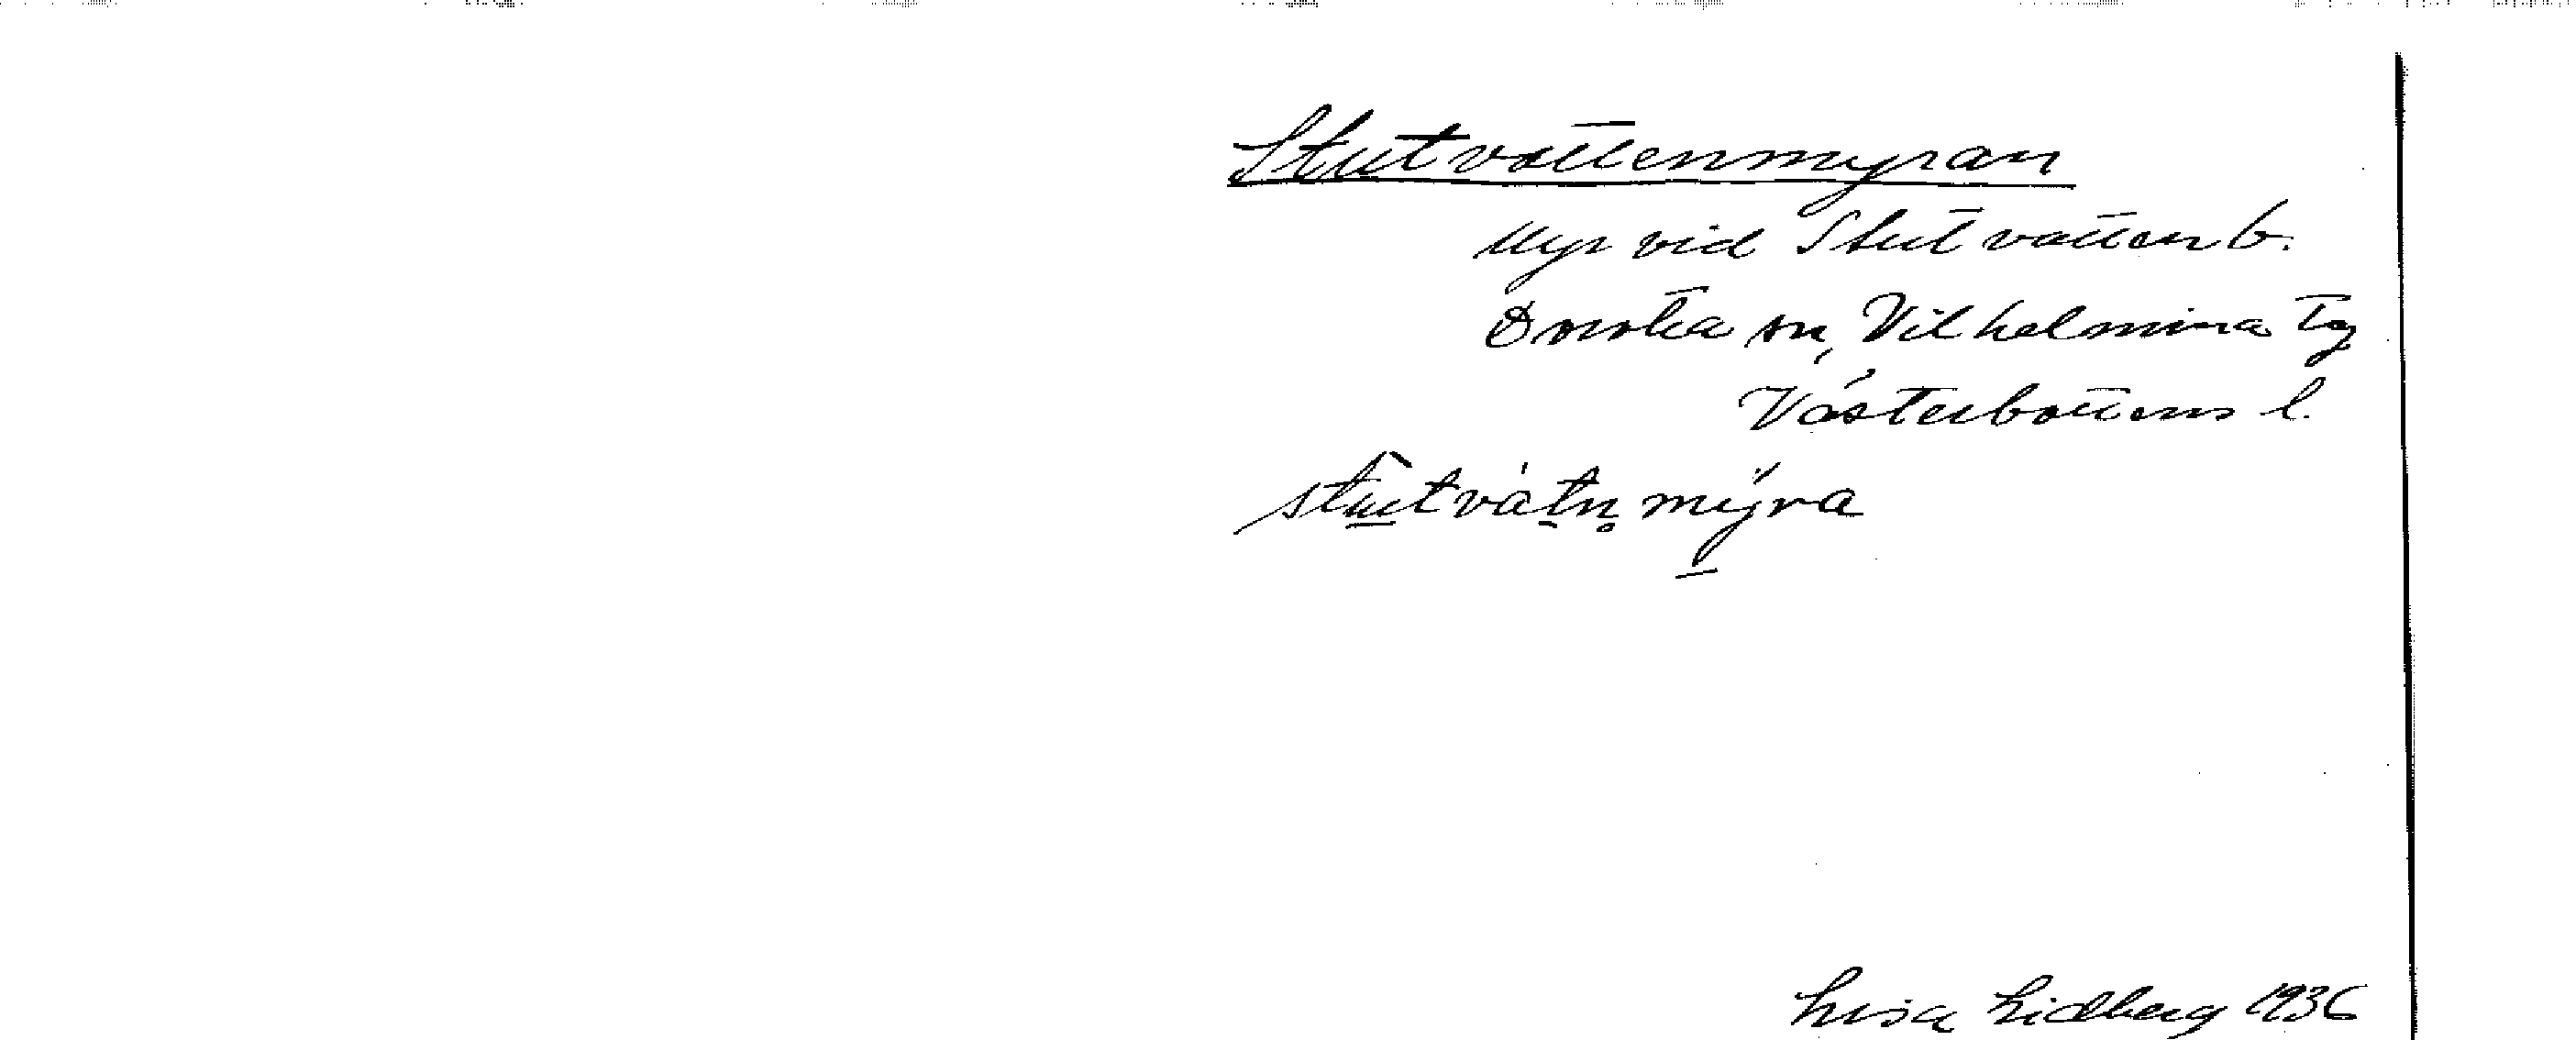 Stutvattenmyran
Myr vid Stutvatten b.
Dorotea sn, Vilhelmina tg
Västerbottens l.
stutvatn̥myra
Lisa Lidberg 1936